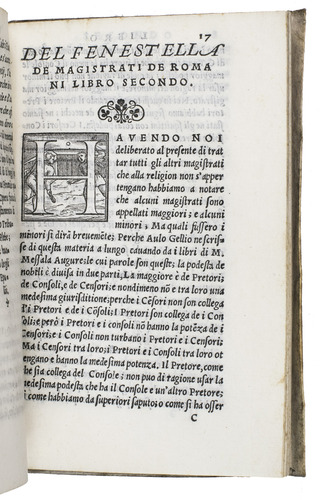 17
DEL FENESTELLA
DE MAGISTRATI DE ROMA
NI LIBRO SECONDO.
HAVENDO NOI
deliberato al presente di trat
tar tutti gli altri magistrati
che alla religion non s'apper
tengano habbiamo a notare
che alcuni magistrati sono
appellati maggiori; e alcuni
minori, Ma quali fussero i
minori si dirà brevemẽte; Perche Aulo Gellio ne scris
se di questa materia a lungo cavando da i libri di M.
Messala Augure; le cui parole son queste; la podesta de
nobili è divisa in due parti, La maggiore è de Pretori;
de Consoli, e de Censori; e nondimeno nõ e tra loro una
medesima giurisditione; perche i Cẽsori non son collega
de i Pretori e de i Cõsoli; I Pretori son collega de i Con
soli; e però i Pretori e i consoli nõ hanno la potẽza de i
Censori; e i Consoli non turbano i Pretori e i Censori;
Ma i Censori tra loro; i Pretori e i Consoli tra loro ot
tengano e hanno la medesima potenza. Il Pretore, come
che sia collega del Consolo; non puo di ragione usar la
medesima podesta che ha il Console e un'altro Pretore;
si come habbiamo da superiori saputo; o come si ha osser
C